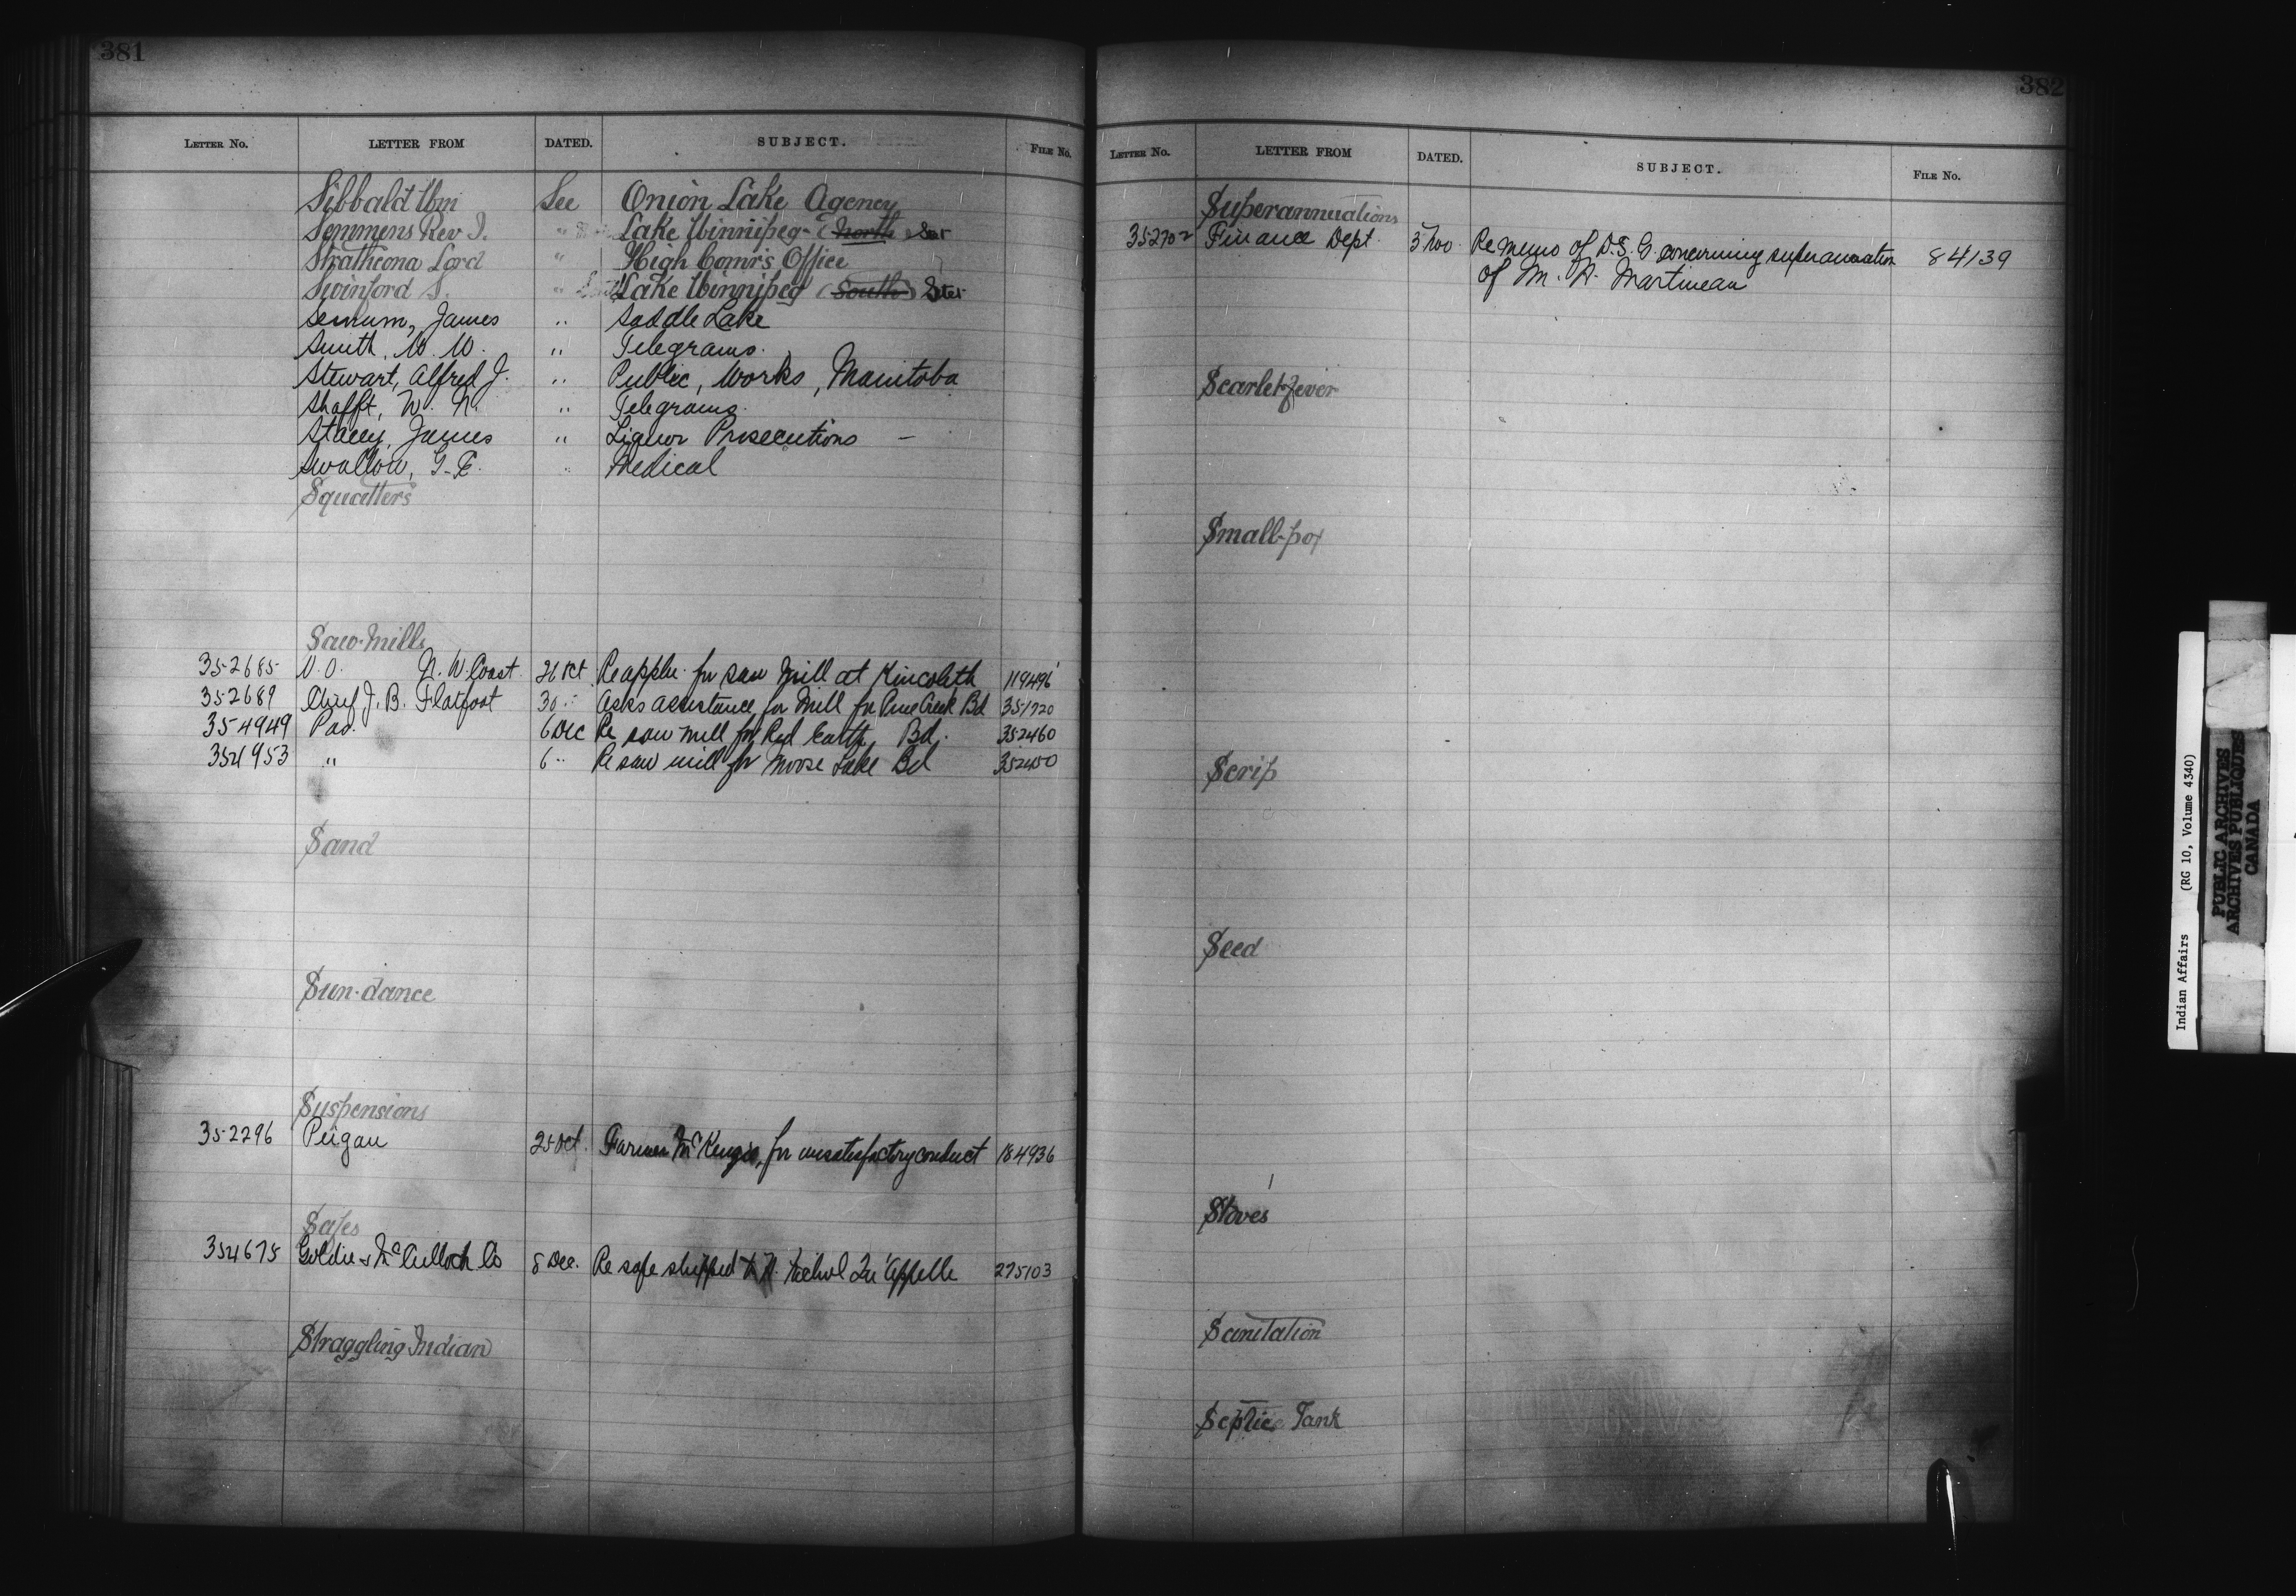 381
LETTER No. LETTER FROM DATED. SUBJECT. FILE No.
Sibbald Wm See Onion Lake Agency
Semmens Rev J. " Lake Winnipeg (North
Strathcona Lord " High Comr's Office
Swinford S. " Lake Winnipeg (South)
James " Saddle Lake
Smith, W. W. " Telegrams.
Stewart, Alfred J. " Public, Works, Manitoba
Shafft, W. " Telegrams.
Stacey, James " Liquor Prosecutions —
Swallow, G. E. " Medical
Squatters
Saw-Mills
352685 V.O. N.W. Coast 26 Oct Re appln. for saw mill at Kincolith 119496
352689 Chief J. B. Flatfoot 30 " Asks assistance for Mill for Pine Creek Bd 351720
354949 Pas. 6 Dec Re saw mill for Red Earth Bd. 352460
354953 " 6 " Re saw mill for Moose Lake Bd
Sand
Sun-dance
Suspensions
352296 Peigan 25 Oct. Farmer McKenzie, for unsatisfactory conduct 184936
Safes
354675 Goldie & McCulloch Co 8 Dec. Re safe shipped to H. Nichol Qu'Appelle 275103
Straggling Indian
382
LETTER No. LETTER FROM DATED. SUBJECT. FILE No.
Superannuations
352702 Finance Dept. 3 Nov. Re memo of D.S.G. concerning superannuation 84139
of M. Martineau
Scarlet-fever
Small-pox
Scrip
Seed
Stoves
Sanitation
Septic Tank
Indian Affairs (RG 10, Volume 4340)
PUBLIC ARCHIVES
ARCHIVES PUBLIQUES
CANADA